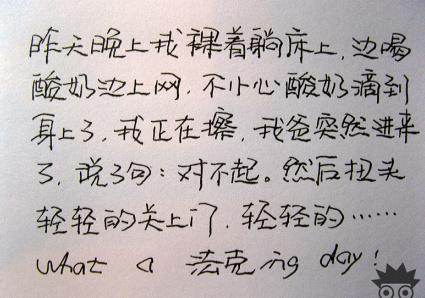 昨天晚上我裸着躺床上,边喝
酸奶边上网,不小心酸奶滴到
身上了,我正在擦,我爸突然进来
了,说了句:对不起。然后扭头
轻轻的关上门,轻轻的……
what a 法克ing day!